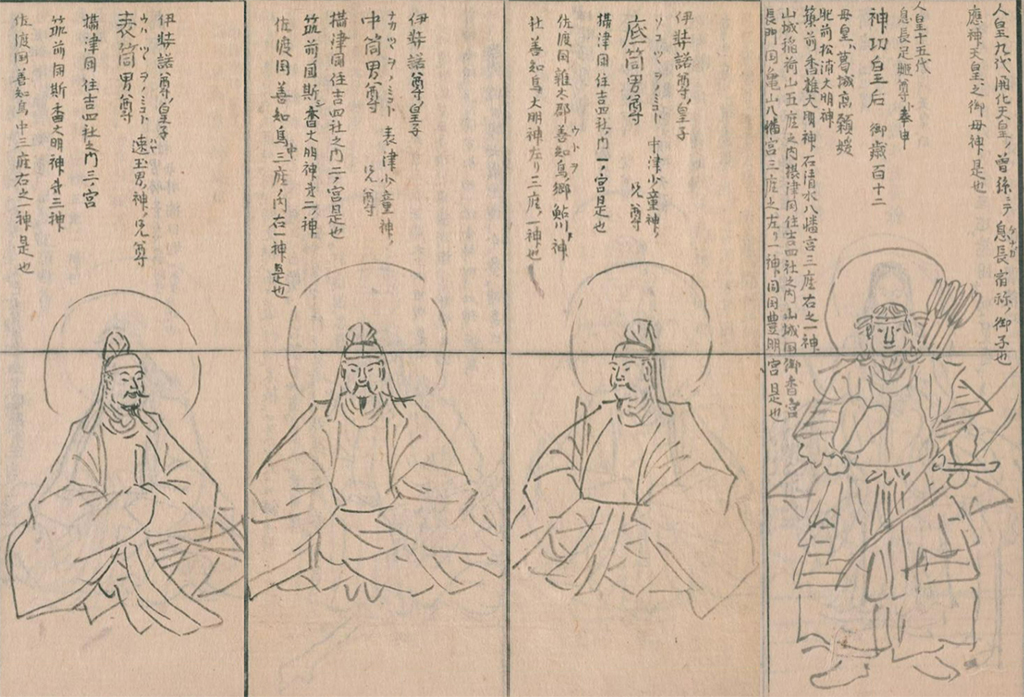 人皇九代開化天皇ノ曽孫ニテ息長宿祢ノ御子也
應神天皇之御母神是也
人皇十五代
息長足姫尊ト奉申
神功皇后 御歳百十二
母皇葛城高額媛
肥前松浦大明神
筑前香椎大明神石清水八幡宮三座右之一神
山城稲荷山五座之内摂津国住吉四社之内山城国御香宮
長門国亀山八幡宮三座之左リ一神同国豊明宮是也
伊弉諾尊ノ皇子
ソコツヽヲノミコト 中津少童神ノ
底筒男尊 兄尊
摂津国住吉四社ノ内一ノ宮是也
佐渡国雜太郡善知鳥郷鮎川ノ神
社善知鳥大明神左リ三座ノ一神也
伊弉諾尊ノ皇子
ナカツヽヲノミコト 表津少童神ノ
中筒男尊 兄尊
摂津国住吉四社之内二ノ宮是也
筑前国斯香大明神第二ノ神
佐渡国善知鳥中三座ノ内右一神是也
伊弉諾尊ノ皇子
ウハツヽヲノミコト
表筒男尊 速玉男ノ神ノ兄尊
摂津国住吉四社之内三ノ宮
筑前国斯香大明神第三神
佐渡国善知鳥中三座右之一神是也